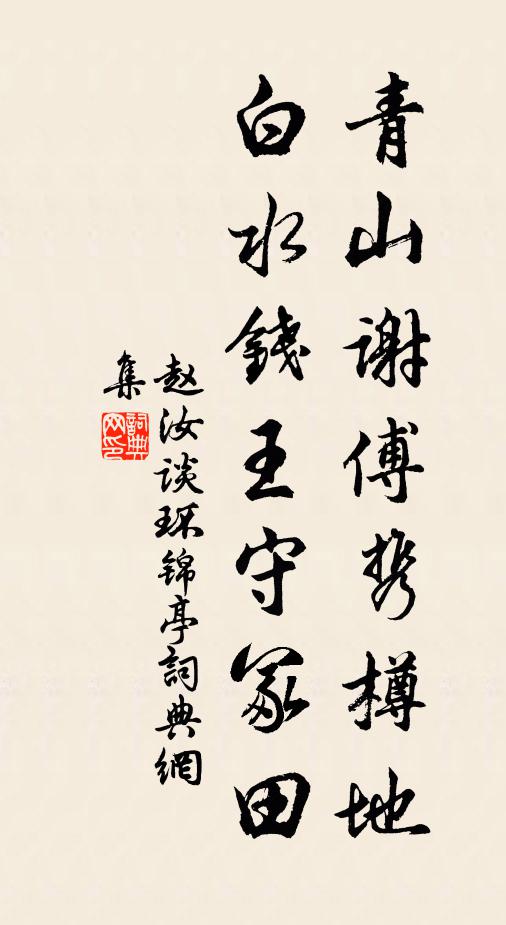 青山谢傅携樽地
白水錢王守冢田
赵汝谈环锦亭詞典網
集
詞典网印